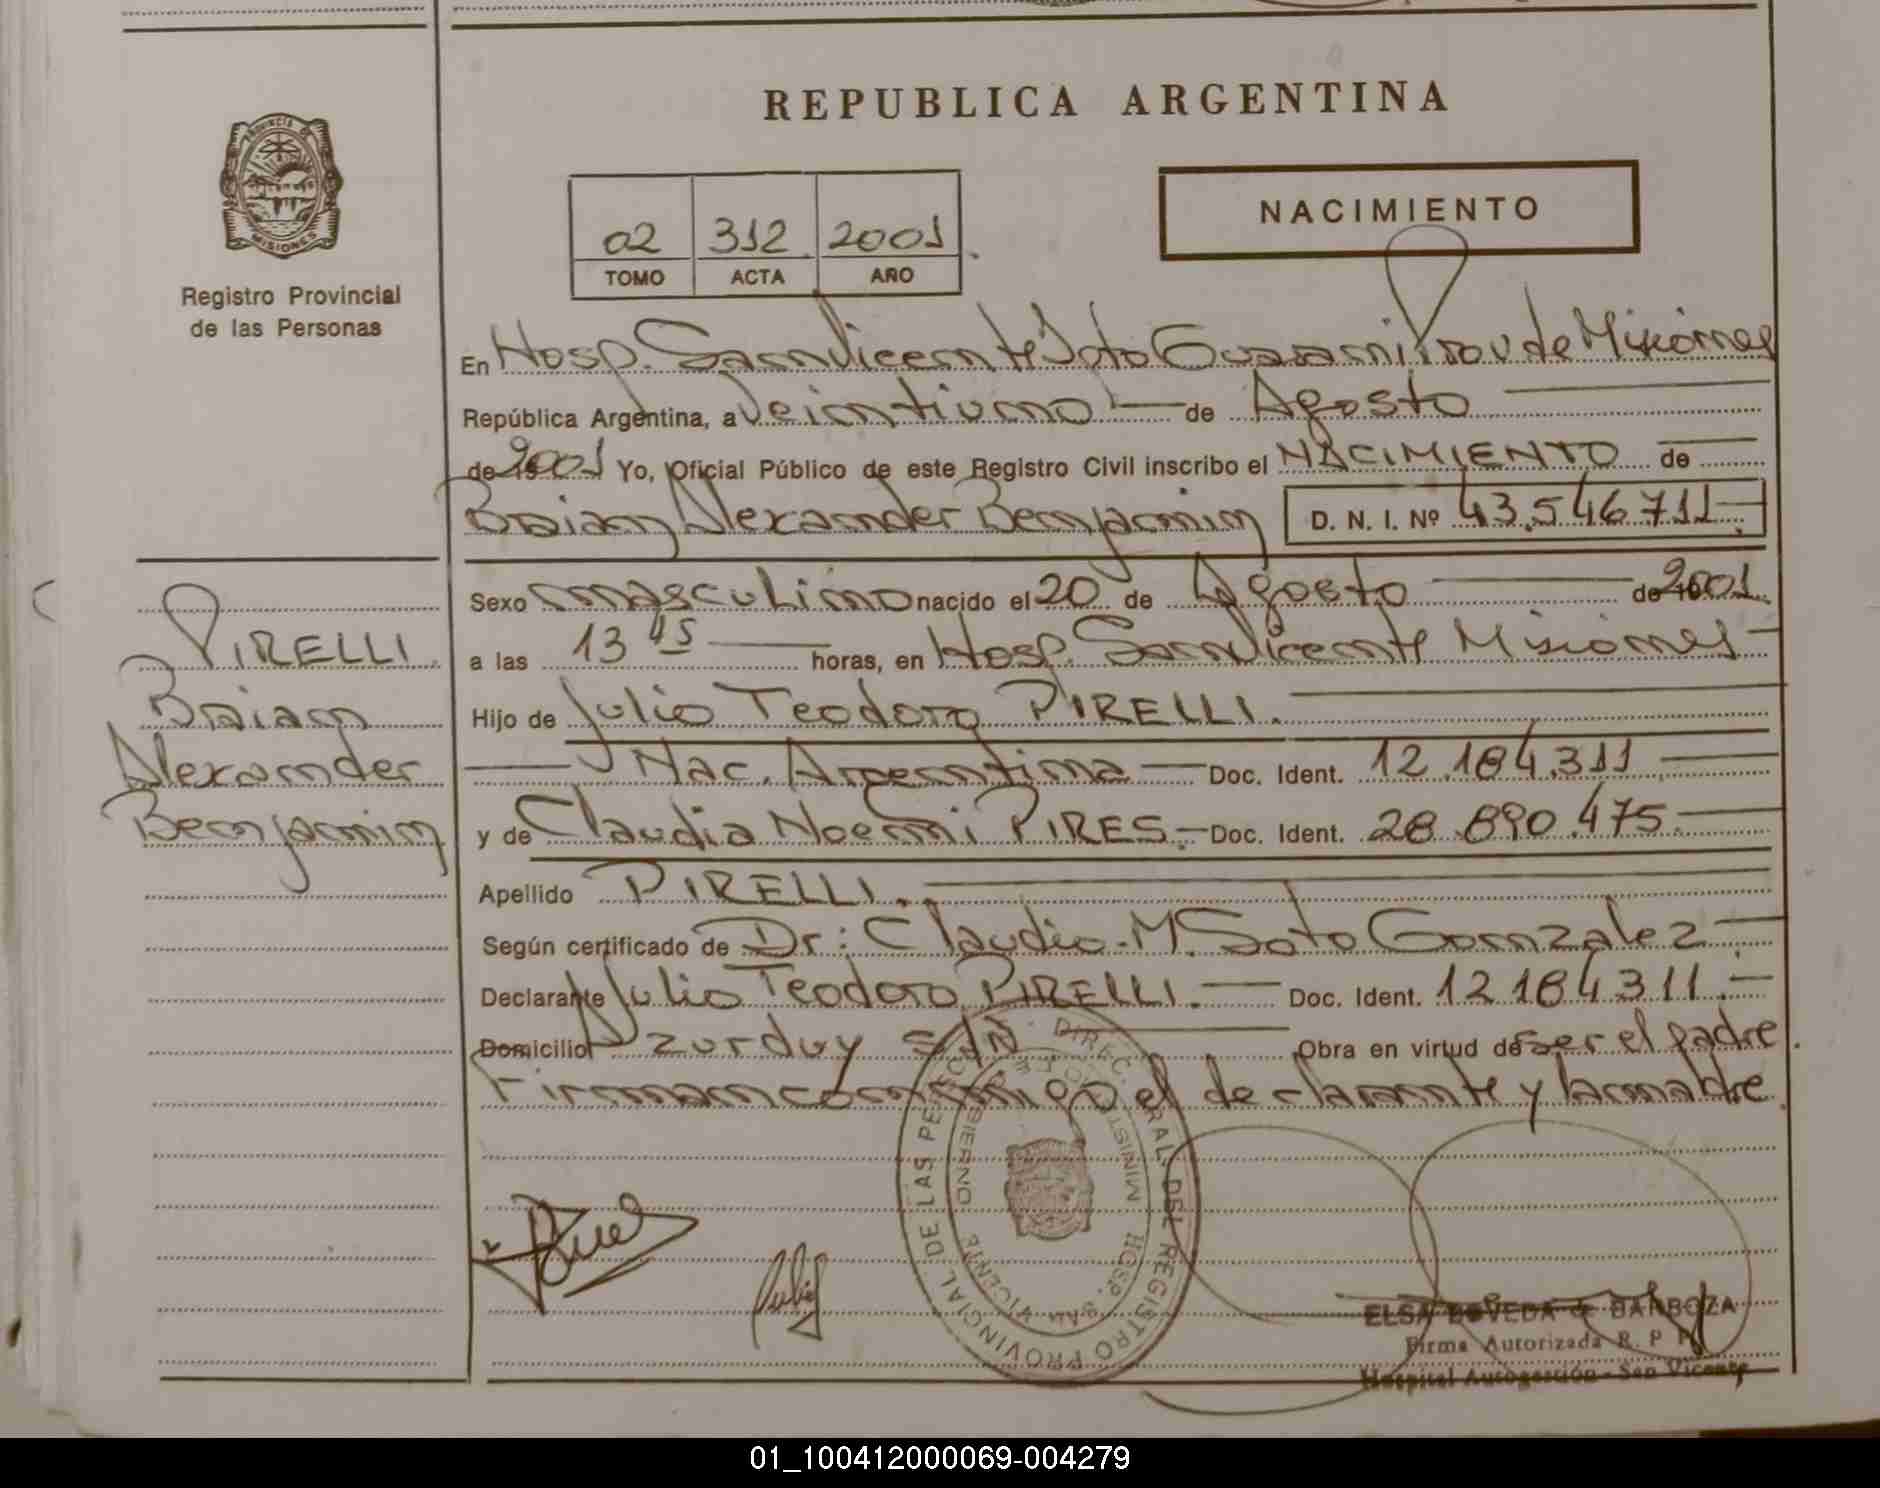 REPUBLICA ARGENTINA
PROVINCIA DE
MISIONES
Registro Provincial
de las Personas
02 312 2001
TOMO ACTA AÑO
NACIMIENTO
En Hosp. San Vicente Dpto Guarani Prov de Misiones
República Argentina, a Veintiuno de Agosto
de 2001 Yo, Oficial Público de este Registro Civil inscribo el NACIMIENTO de
Braian Alexander Benjamin D. N. I. Nº 43.546.711
Sexo masculino nacido el 20 de Agosto de 2001
a las 13 45 horas, en Hosp. San Vicente Misiones
Hijo de Julio Teodoro PIRELLI.
Nac. Argentina Doc. Ident. 12.184.311
y de Claudia Noemi PIRES. Doc. Ident. 28.890.475
Apellido PIRELLI.
Según certificado de Dr: Claudio M. Soto Gonzalez
Declarante Julio Teodoro PIRELLI. Doc. Ident. 12.184.311
Domicilio Azurduy S/N Obra en virtud de ser el padre
Firman conmigo el declarante y la madre.
PIRELLI
Braian
Alexander
Benjamin
DIREC. GRAL. DEL REGISTRO PROVINCIAL DE LAS PERSONAS
HOSP. SAN VICENTE
ELSA BOVEDA de BARBOZA
Firma Autorizada R. P. P.
Hospital Autogestión - San Vicente
01_100412000069-004279